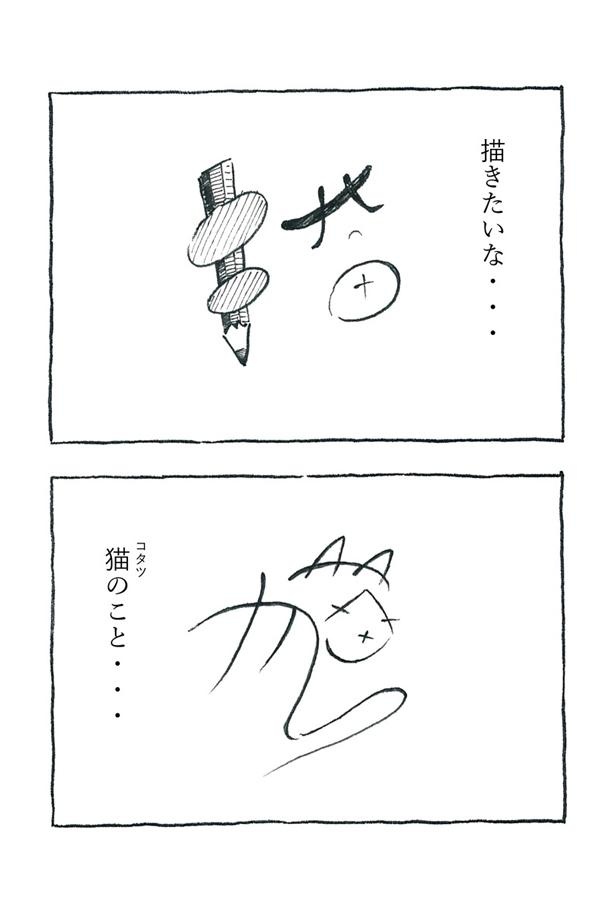 描きたいな・・・
猫のこと・・・
コタツ